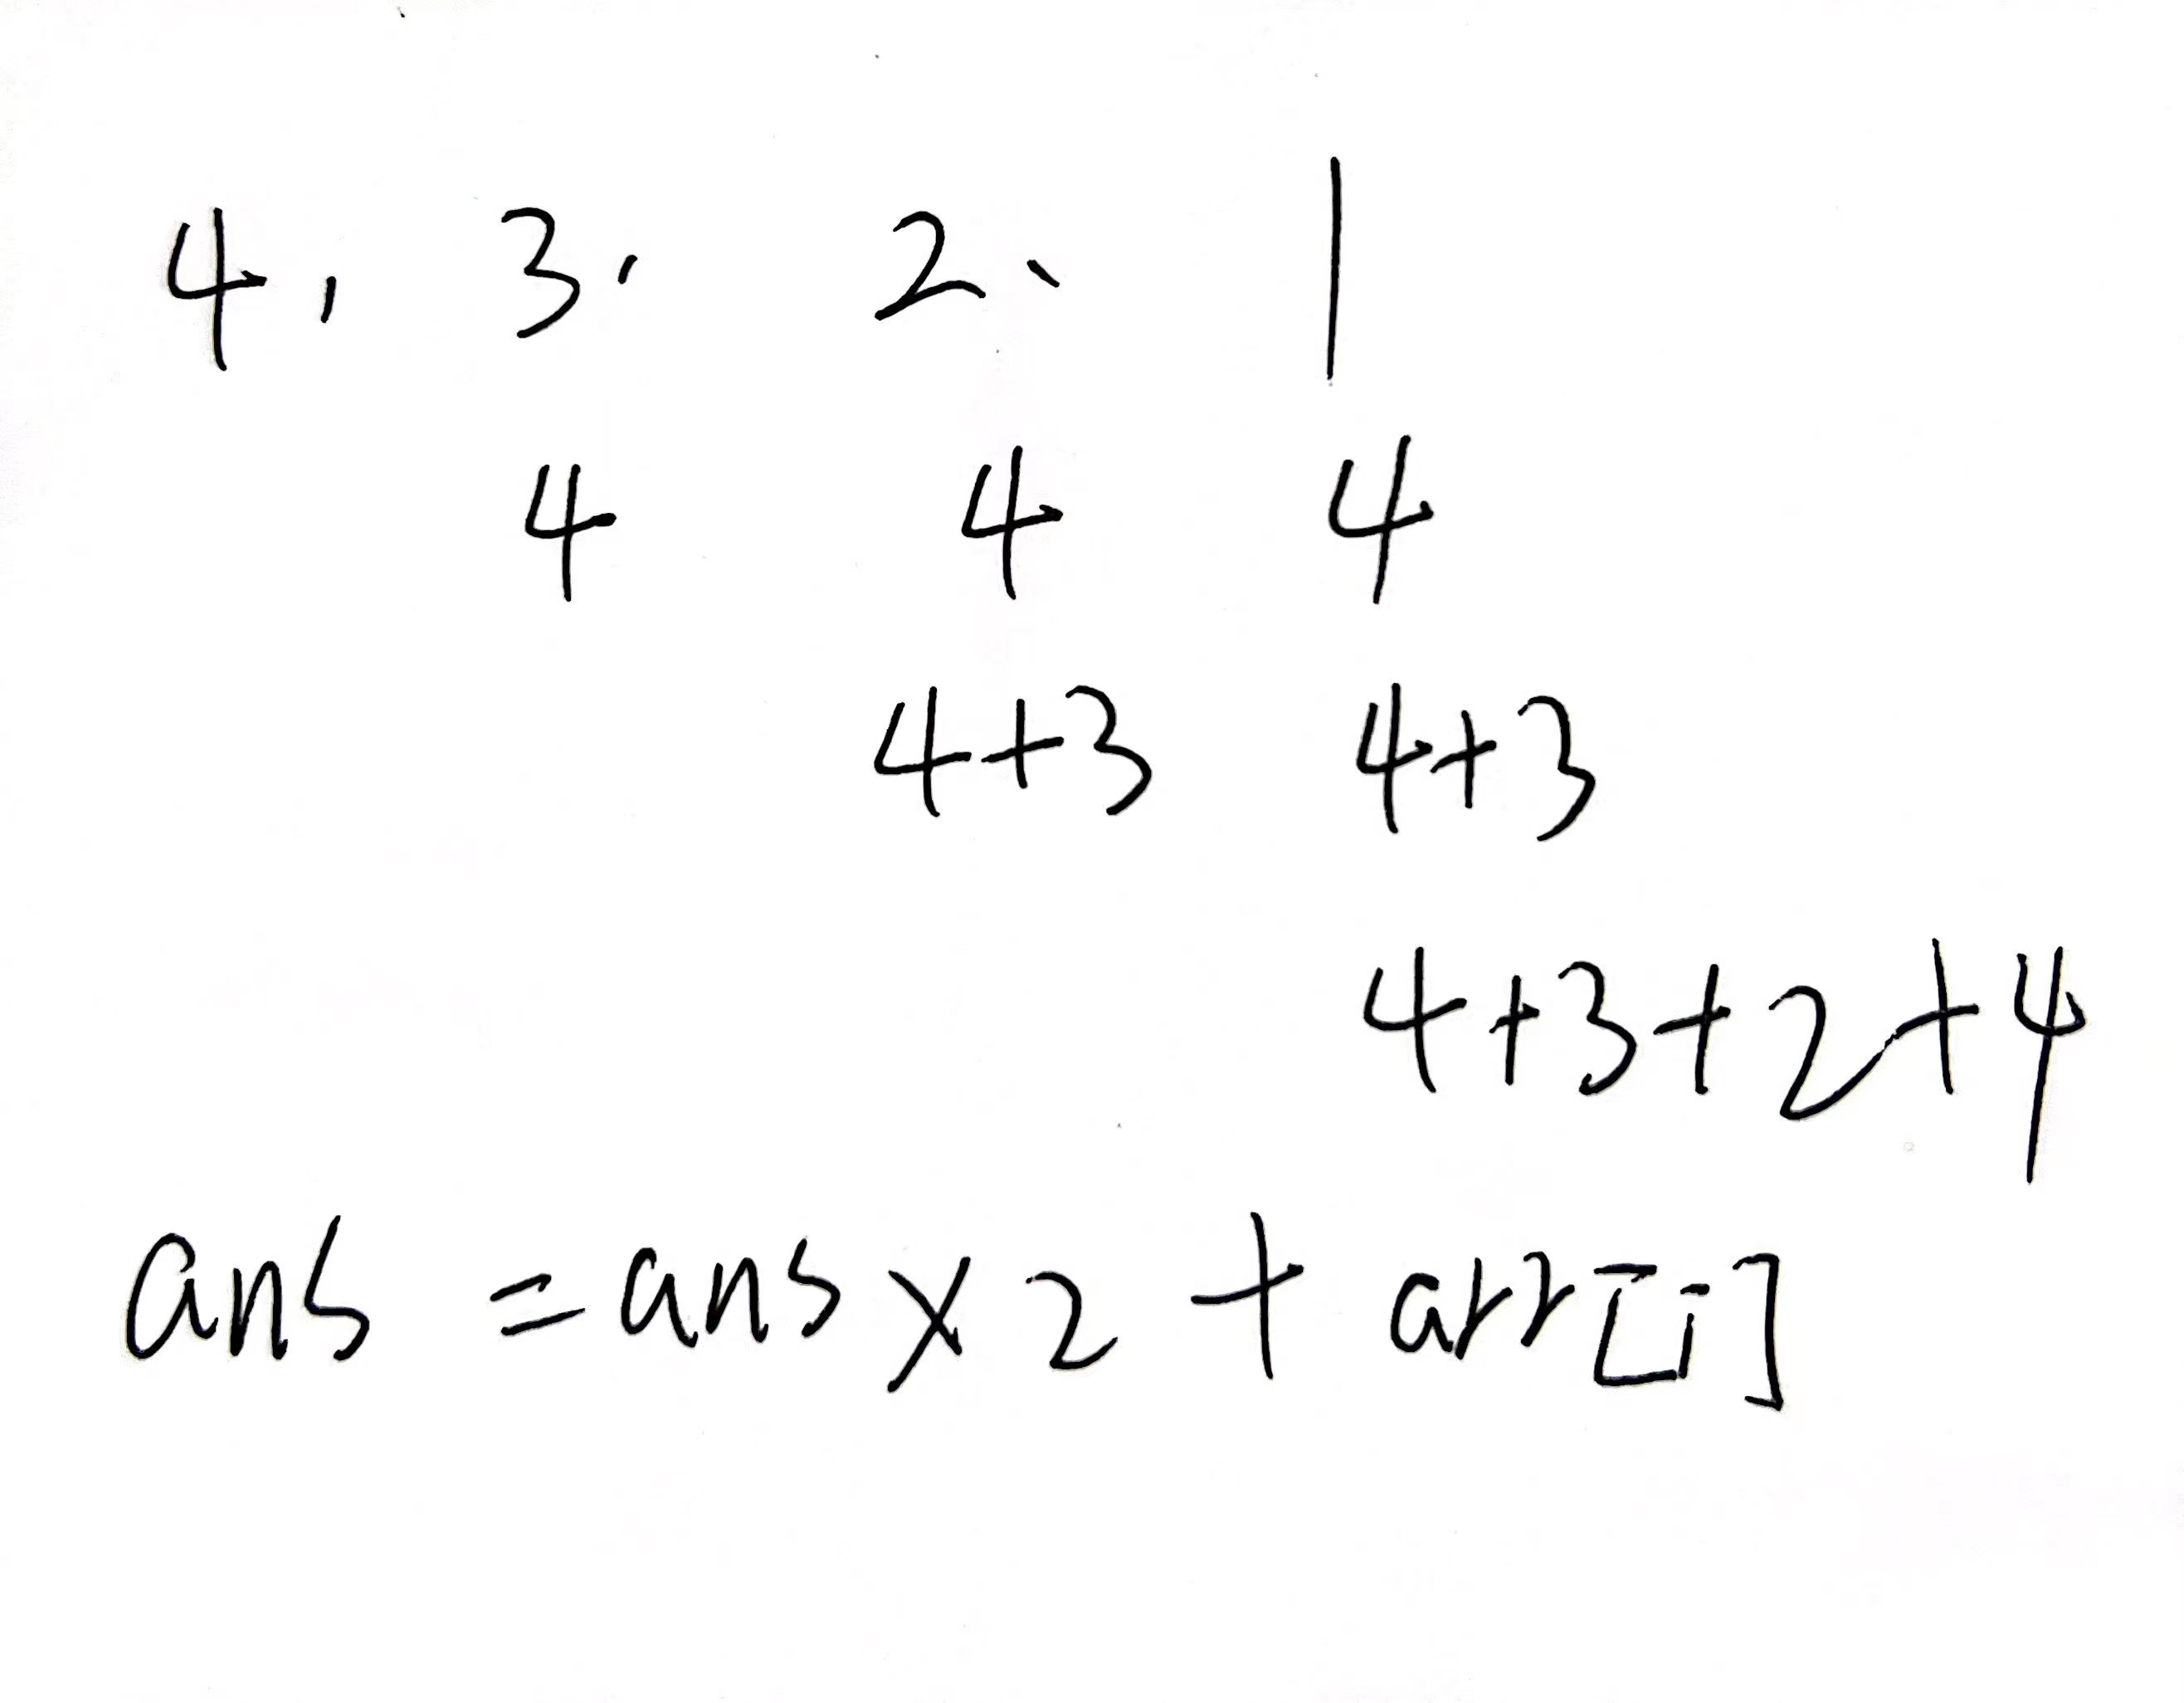 4, 3. 2、 1
4 4 4
4+3 4+3
4+3+2+4
ans = ans × 2 + arr[i]